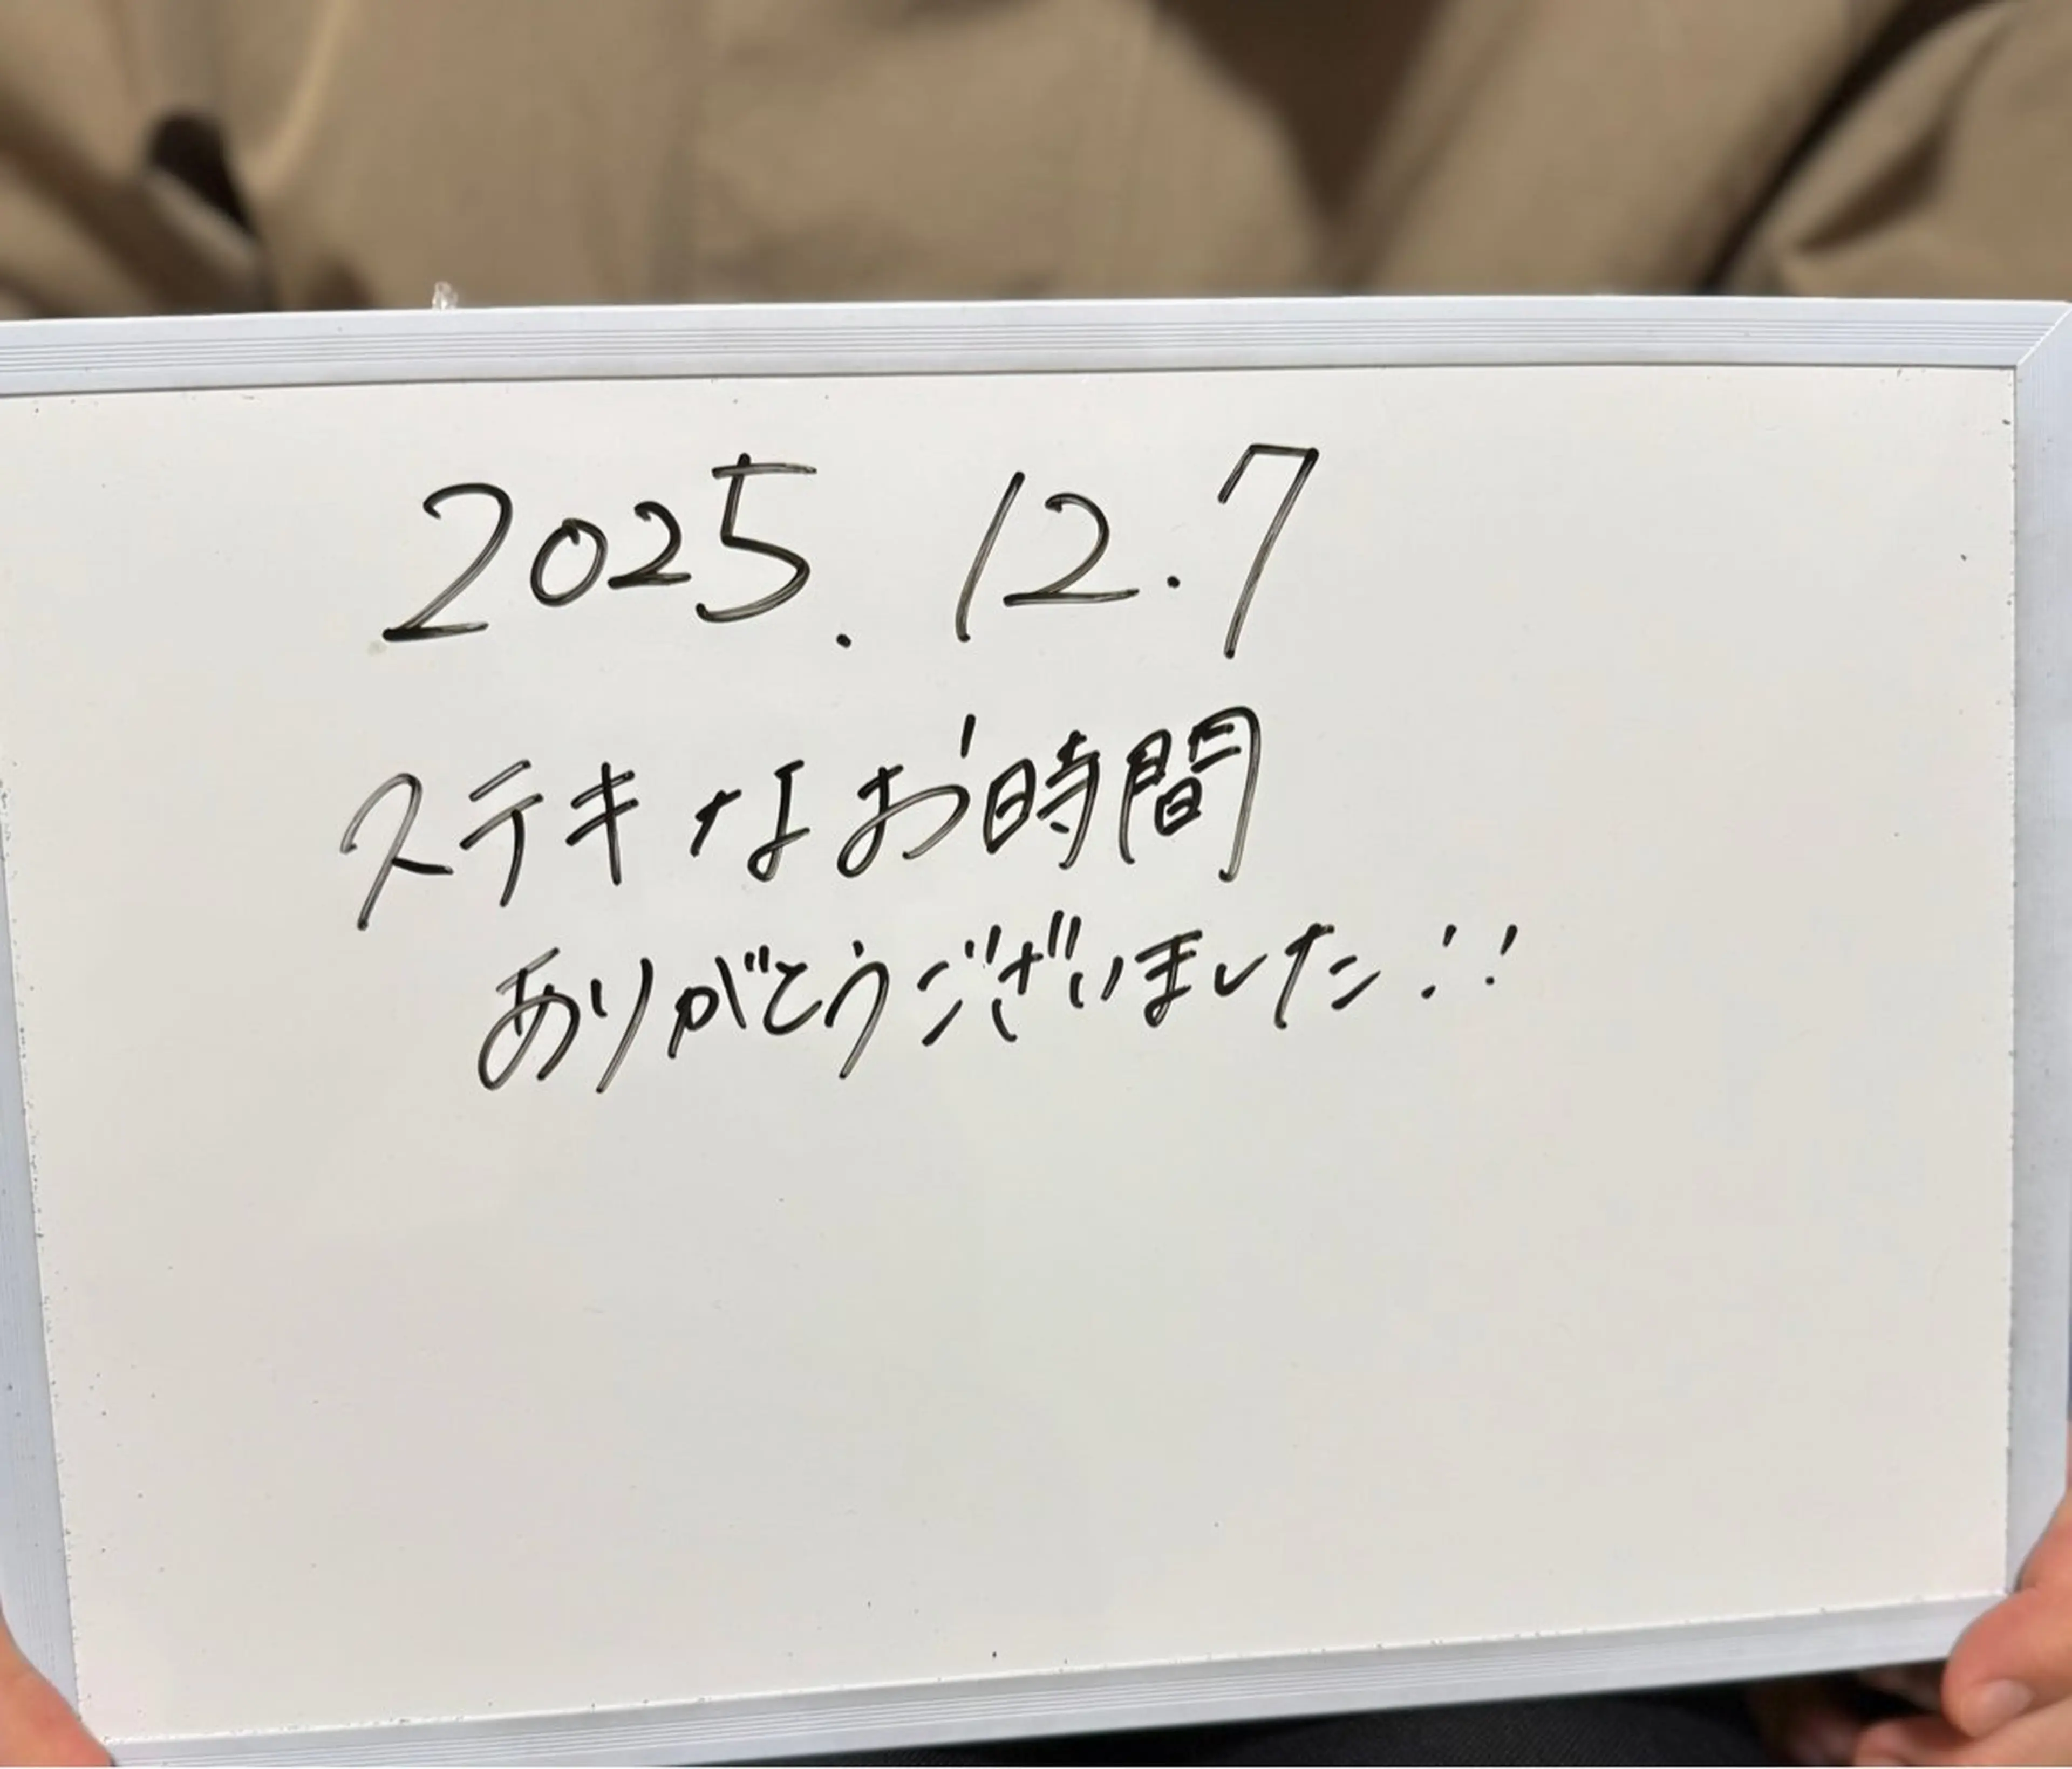 2025. 12.7
ステキなお時間
ありがとうございました!!